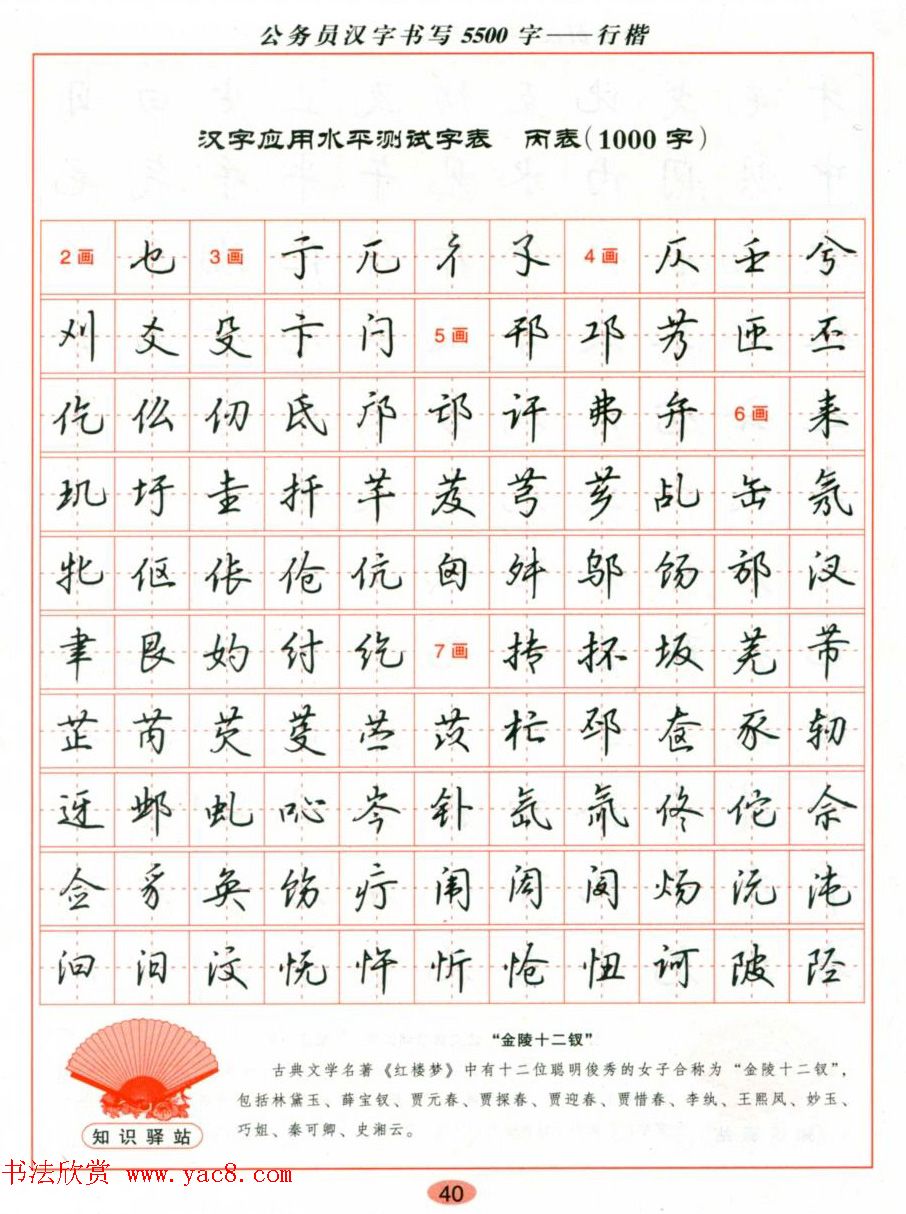 公务员汉字书写5500字——行楷
汉字应用水平测试字表 丙表(1000字)
2画 乜 3画 亍 兀 彳 孑 4画 仄 壬 兮
刈 爻 殳 卞 闩 5画 邗 邛 艿 匝 丕
仡 仫 仞 氐 邝 邙 讦 弗 弁 6画 耒
玑 圩 圭 扦 芊 芨 芎 芗 乩 缶 氖
牝 伛 伥 伧 伉 匈 舛 邬 饧 邡 汊
聿 艮 妁 纣 纥 7画 抟 抔 坂 芜 芾
芷 芮 芡 芟 苎 茨 杧 邳 奁 豕 轫
迓 邺 虬 吣 岑 钋 氙 氚 佟 佗 佘
佥 豸 奂 饬 疔 闱 闳 闵 炀 沅 沌
泊 汨 汶 忱 忤 忻 怆 忸 诃 陂 陉
“金陵十二钗”
古典文学名著《红楼梦》中有十二位聪明俊秀的女子合称为“金陵十二钗”,
包括林黛玉、薛宝钗、贾元春、贾探春、贾迎春、贾惜春、李纨、王熙凤、妙玉、
巧姐、秦可卿、史湘云。
知识驿站
书法欣赏 www.yac8.com
40